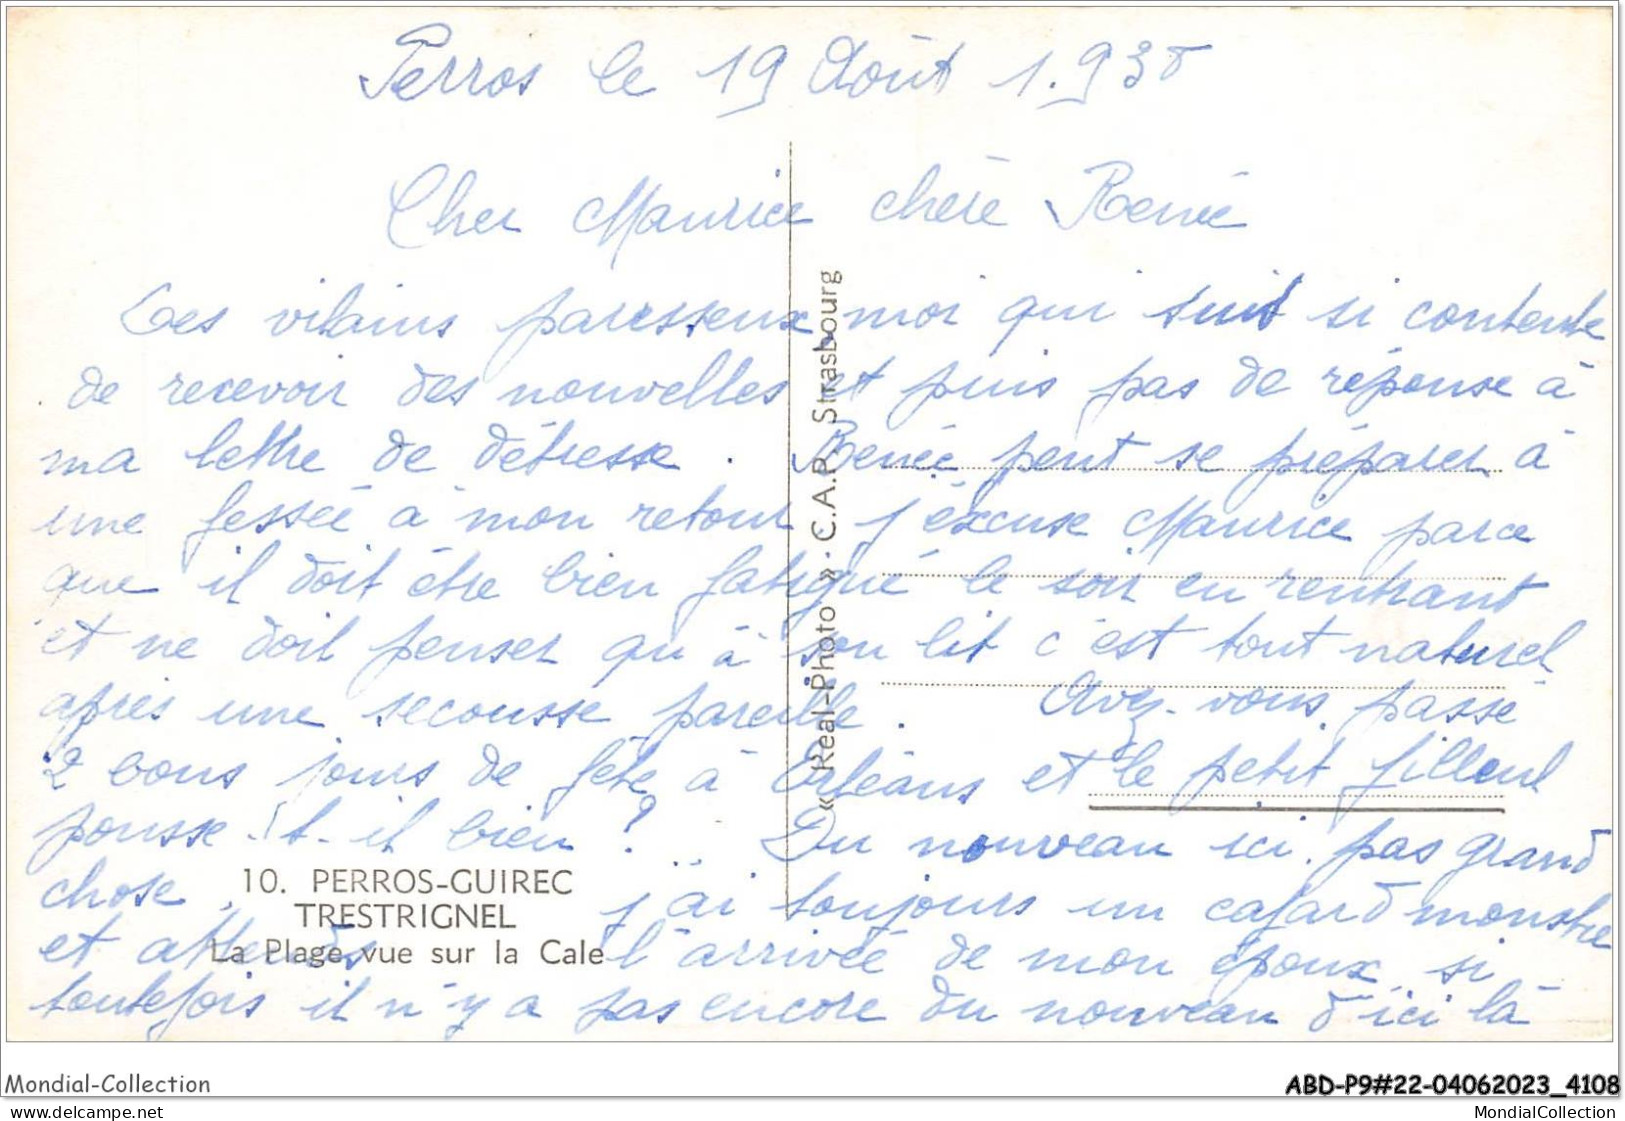 Perros le 19 Août 1.938
Cher Maurice chère Renée
Ces vilains paresseux moi qui suis si contente
de recevoir des nouvelles et puis pas de réponse à
ma lettre de détresse. Renée peut se préparer à
une fessée à mon retour j'excuse Maurice parce
que il doit être bien fatigué le soir en rentrant
et ne doit penser qu'à son lit c'est tout naturel
après une secousse pareille. Avez-vous passé
2 bons jours de fête à Orléans et le petit filleul
pousse-t-il bien? Du nouveau ici pas grand
chose, j'ai toujours un cafard monstre
et attends l'arrivée de mon époux, si
toutefois il n'y a pas encore du nouveau d'ici là
10. PERROS-GUIREC
TRESTRIGNEL
La Plage vue sur la Cale
« Real-Photo » · C.A.P. Strasbourg
Mondial-Collection
ABD-P9#22-04062023_4108
https://www.delcampe.net
MondialCollection